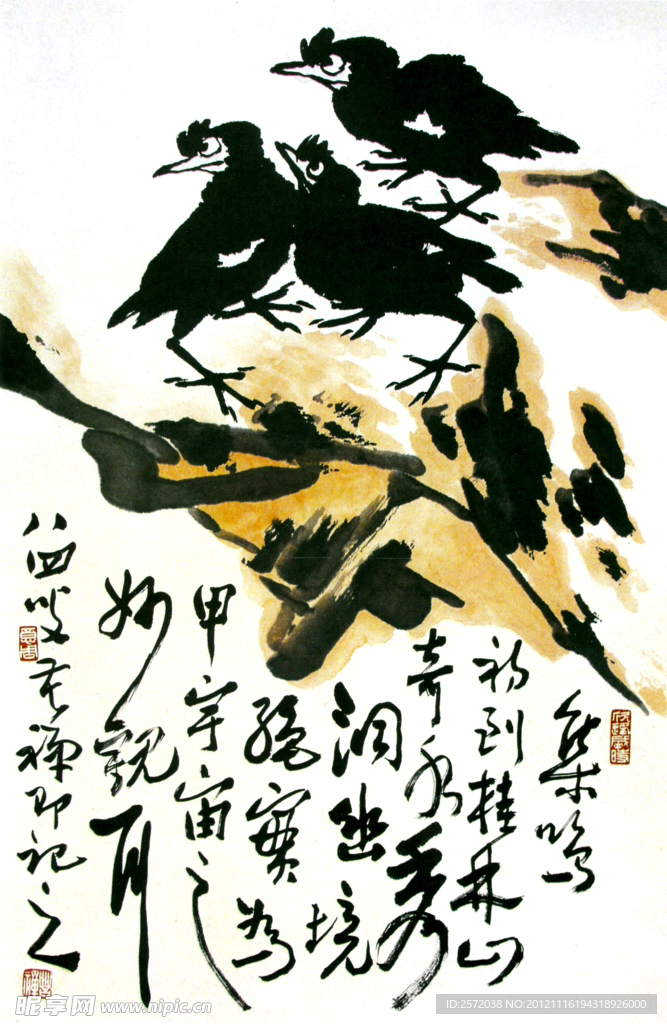 集鳴
初到桂林山
奇水秀
洞幽境
絕實為
甲宇宙之
妙觀耳
八四叟苦禪即記之
昵享网 www.nipic.cn
ID:2572038 NO:20121116194318926000